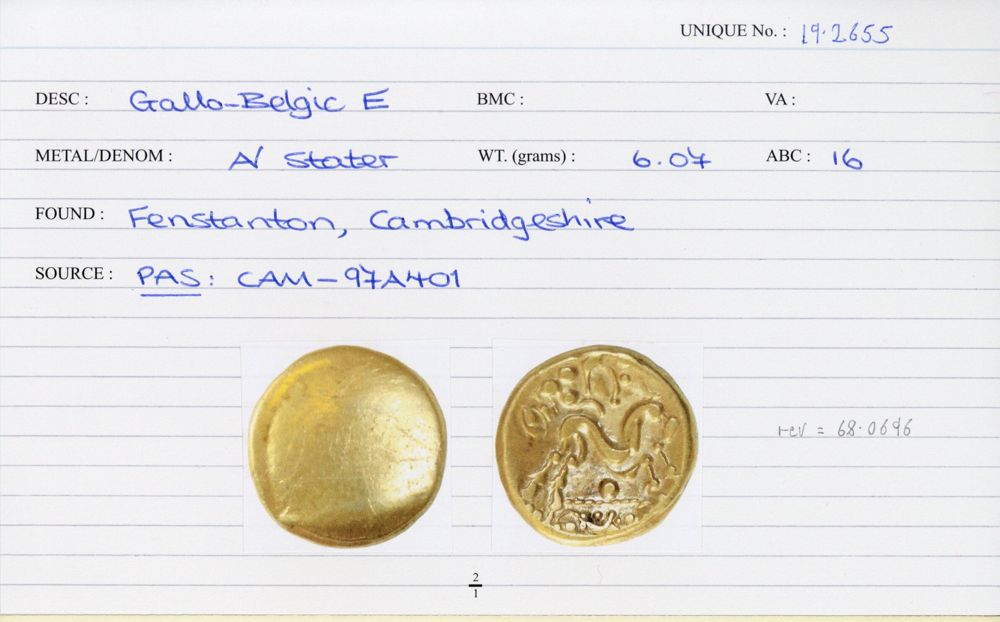 UNIQUE No. : 19.2655
DESC : Gallo-Belgic E BMC : VA :
METAL/DENOM : A/ Stater WT. (grams) : 6.07 ABC : 16
FOUND : Fenstanton, Cambridgeshire
SOURCE : PAS: CAM-97A401
rev = 68.0696
2
1